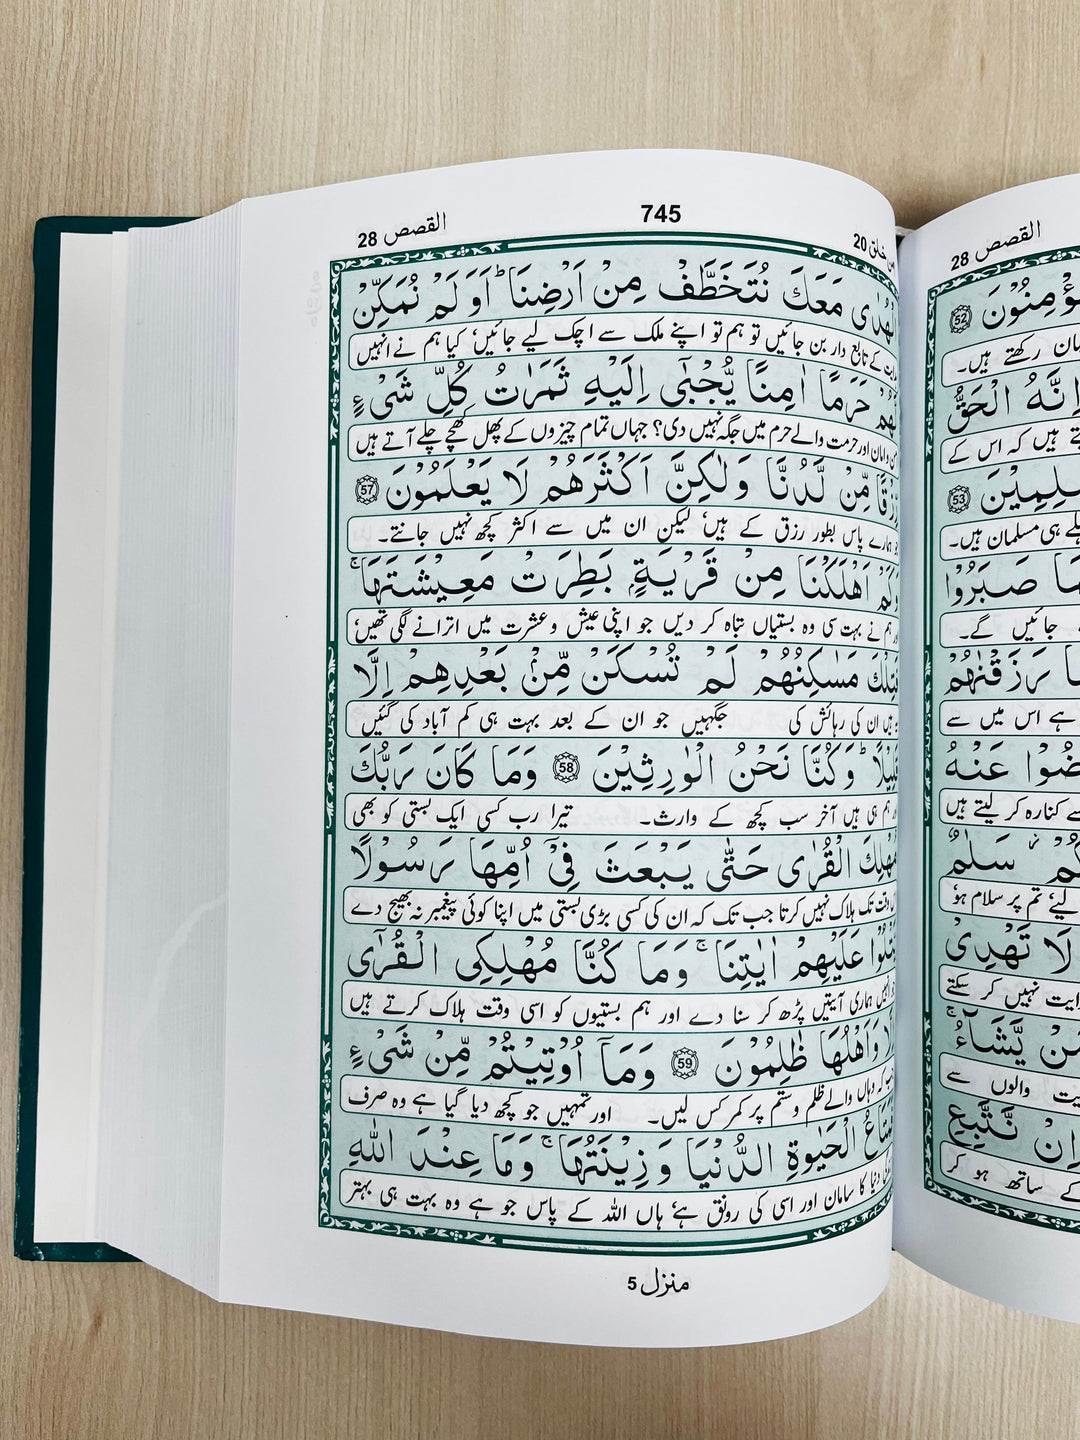 القصص 28
745
خلق 20
مَعَكَ نُتَخَطَّفْ مِنْ اَرْضِنَا ؕ اَوَ لَمْ نُمَكِّنْ
کے تابع دار بن جائیں تو ہم تو اپنے ملک سے اچک لیے جائیں‘ کیا ہم نے انہیں
حَرَمًا اٰمِنًا یُّجْبٰۤی اِلَیْهِ ثَمَرٰتُ كُلِّ شَیْءٍ
وامان اور حرمت والے حرم میں جگہ نہیں دی؟ جہاں تمام چیزوں کے پھل کھچے چلے آتے ہیں
رِّزْقًا مِّنْ لَّدُنَّا وَلٰكِنَّ اَكْثَرَهُمْ لَا یَعْلَمُوْنَ 57
ہمارے پاس بطور رزق کے ہیں‘ لیکن ان میں سے اکثر کچھ نہیں جانتے۔
وَكَمْ اَهْلَكْنَا مِنْ قَرْیَةٍۭ بَطِرَتْ مَعِیْشَتَهَا ۚ
ہم نے بہت سی وہ بستیاں تباہ کر دیں جو اپنی عیش وعشرت میں اترانے لگی تھیں‘
فَتِلْكَ مَسٰكِنُهُمْ لَمْ تُسْكَنْ مِّنْۢ بَعْدِهِمْ اِلَّا
ان کی رہائش کی جگہیں جو ان کے بعد بہت ہی کم آباد کی گئیں
قَلِیْلًا ؕ وَكُنَّا نَحْنُ الْوٰرِثِیْنَ 58 وَمَا كَانَ رَبُّكَ
ہم ہی ہیں آخر سب کچھ کے وارث۔ تیرا رب کسی ایک بستی کو بھی
مُهْلِكَ الْقُرٰی حَتّٰی یَبْعَثَ فِیْۤ اُمِّهَا رَسُوْلًا
وقت تک ہلاک نہیں کرتا جب تک کہ ان کی کسی بڑی بستی میں اپنا کوئی پیغمبر نہ بھیج دے
یَّتْلُوْا عَلَیْهِمْ اٰیٰتِنَا ۚ وَمَا كُنَّا مُهْلِكِی الْقُرٰۤی
ہماری آیتیں پڑھ کر سنا دے اور ہم بستیوں کو اسی وقت ہلاک کرتے ہیں
وَاَهْلُهَا ظٰلِمُوْنَ 59 وَمَاۤ اُوْتِیْتُمْ مِّنْ شَیْءٍ
کہ وہاں والے ظلم وستم پر کمر کس لیں۔ اور تمہیں جو کچھ دیا گیا ہے وہ صرف
الْحَیٰوةِ الدُّنْیَا وَزِیْنَتُهَا ۚ وَمَا عِنْدَ اللّٰهِ
دنیا کا سامان اور اسی کی رونق ہے‘ ہاں اللہ کے پاس جو ہے وہ بہت ہی بہتر
منزل 5
القصص 28
52
رکھتے ہیں۔
اِنَّهُ الْحَقُّ
ہیں کہ اس کے
53
ہی مسلمان ہیں۔
صَبَرُوْا
جائیں گے۔
رَزَقْنٰهُمْ
ہے اس میں سے
عَنْهُ
کنارہ کر لیتے ہیں
سَلٰمٌ
تم پر سلام ہو‘
لَا تَهْدِیْ
نہیں کر سکتے
مَنْ یَّشَآءُ ۚ
والوں سے
اِنْ نَّتَّبِعِ
کے ساتھ ہو کر